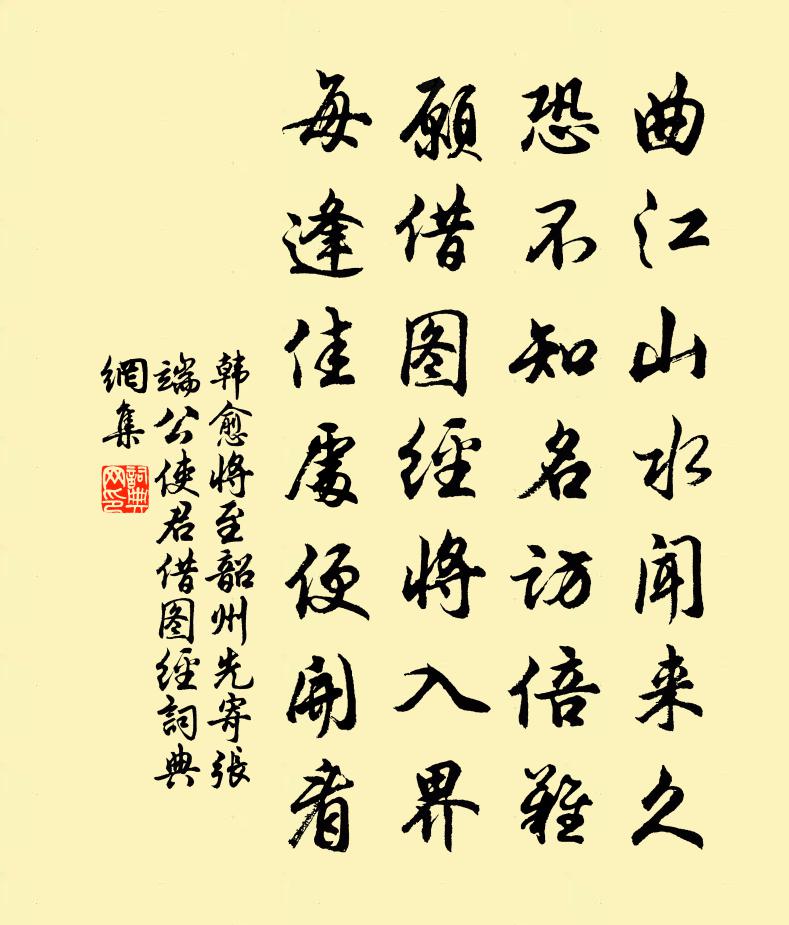 曲江山水闻来久
恐不知名访倍难
愿借图经将入界
每逢佳处便开看
韩愈将至韶州先寄张
端公使君借图经词典
网集
词典网印